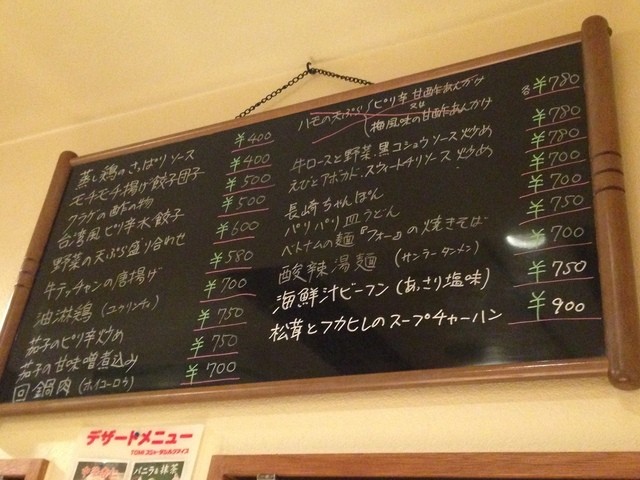 蒸し鶏のさっぱりソース ¥400
モチモチ揚げ餃子団子 ¥400
クラゲの酢の物 ¥500
台湾風ピリ辛水餃子 ¥500
野菜の天ぷら盛り合わせ ¥600
牛テッチャンの唐揚げ ¥580
油淋鶏(ユウリンチィ) ¥700
茄子のピリ辛炒め ¥750
茄子の甘味噌煮込み ¥750
回鍋肉(ホイコーロウ) ¥700
ハモの天ぷら(ピリ辛甘酢あんかけ 又は 梅風味の甘酢あんかけ) 各¥780
牛ロースと野菜.黒コショウソース炒め ¥780
えびとアボカド.スウィートチリソース炒め ¥780
長崎ちゃんぽん ¥700
パリパリ皿うどん ¥700
ベトナムの麺『フォー』の焼きそば ¥700
酸辣湯麺(サンラータンメン) ¥700
海鮮汁ビーフン(あっさり塩味) ¥750
松茸とフカヒレのスープチャーハン ¥900
デザートメニュー
バニラ&抹茶